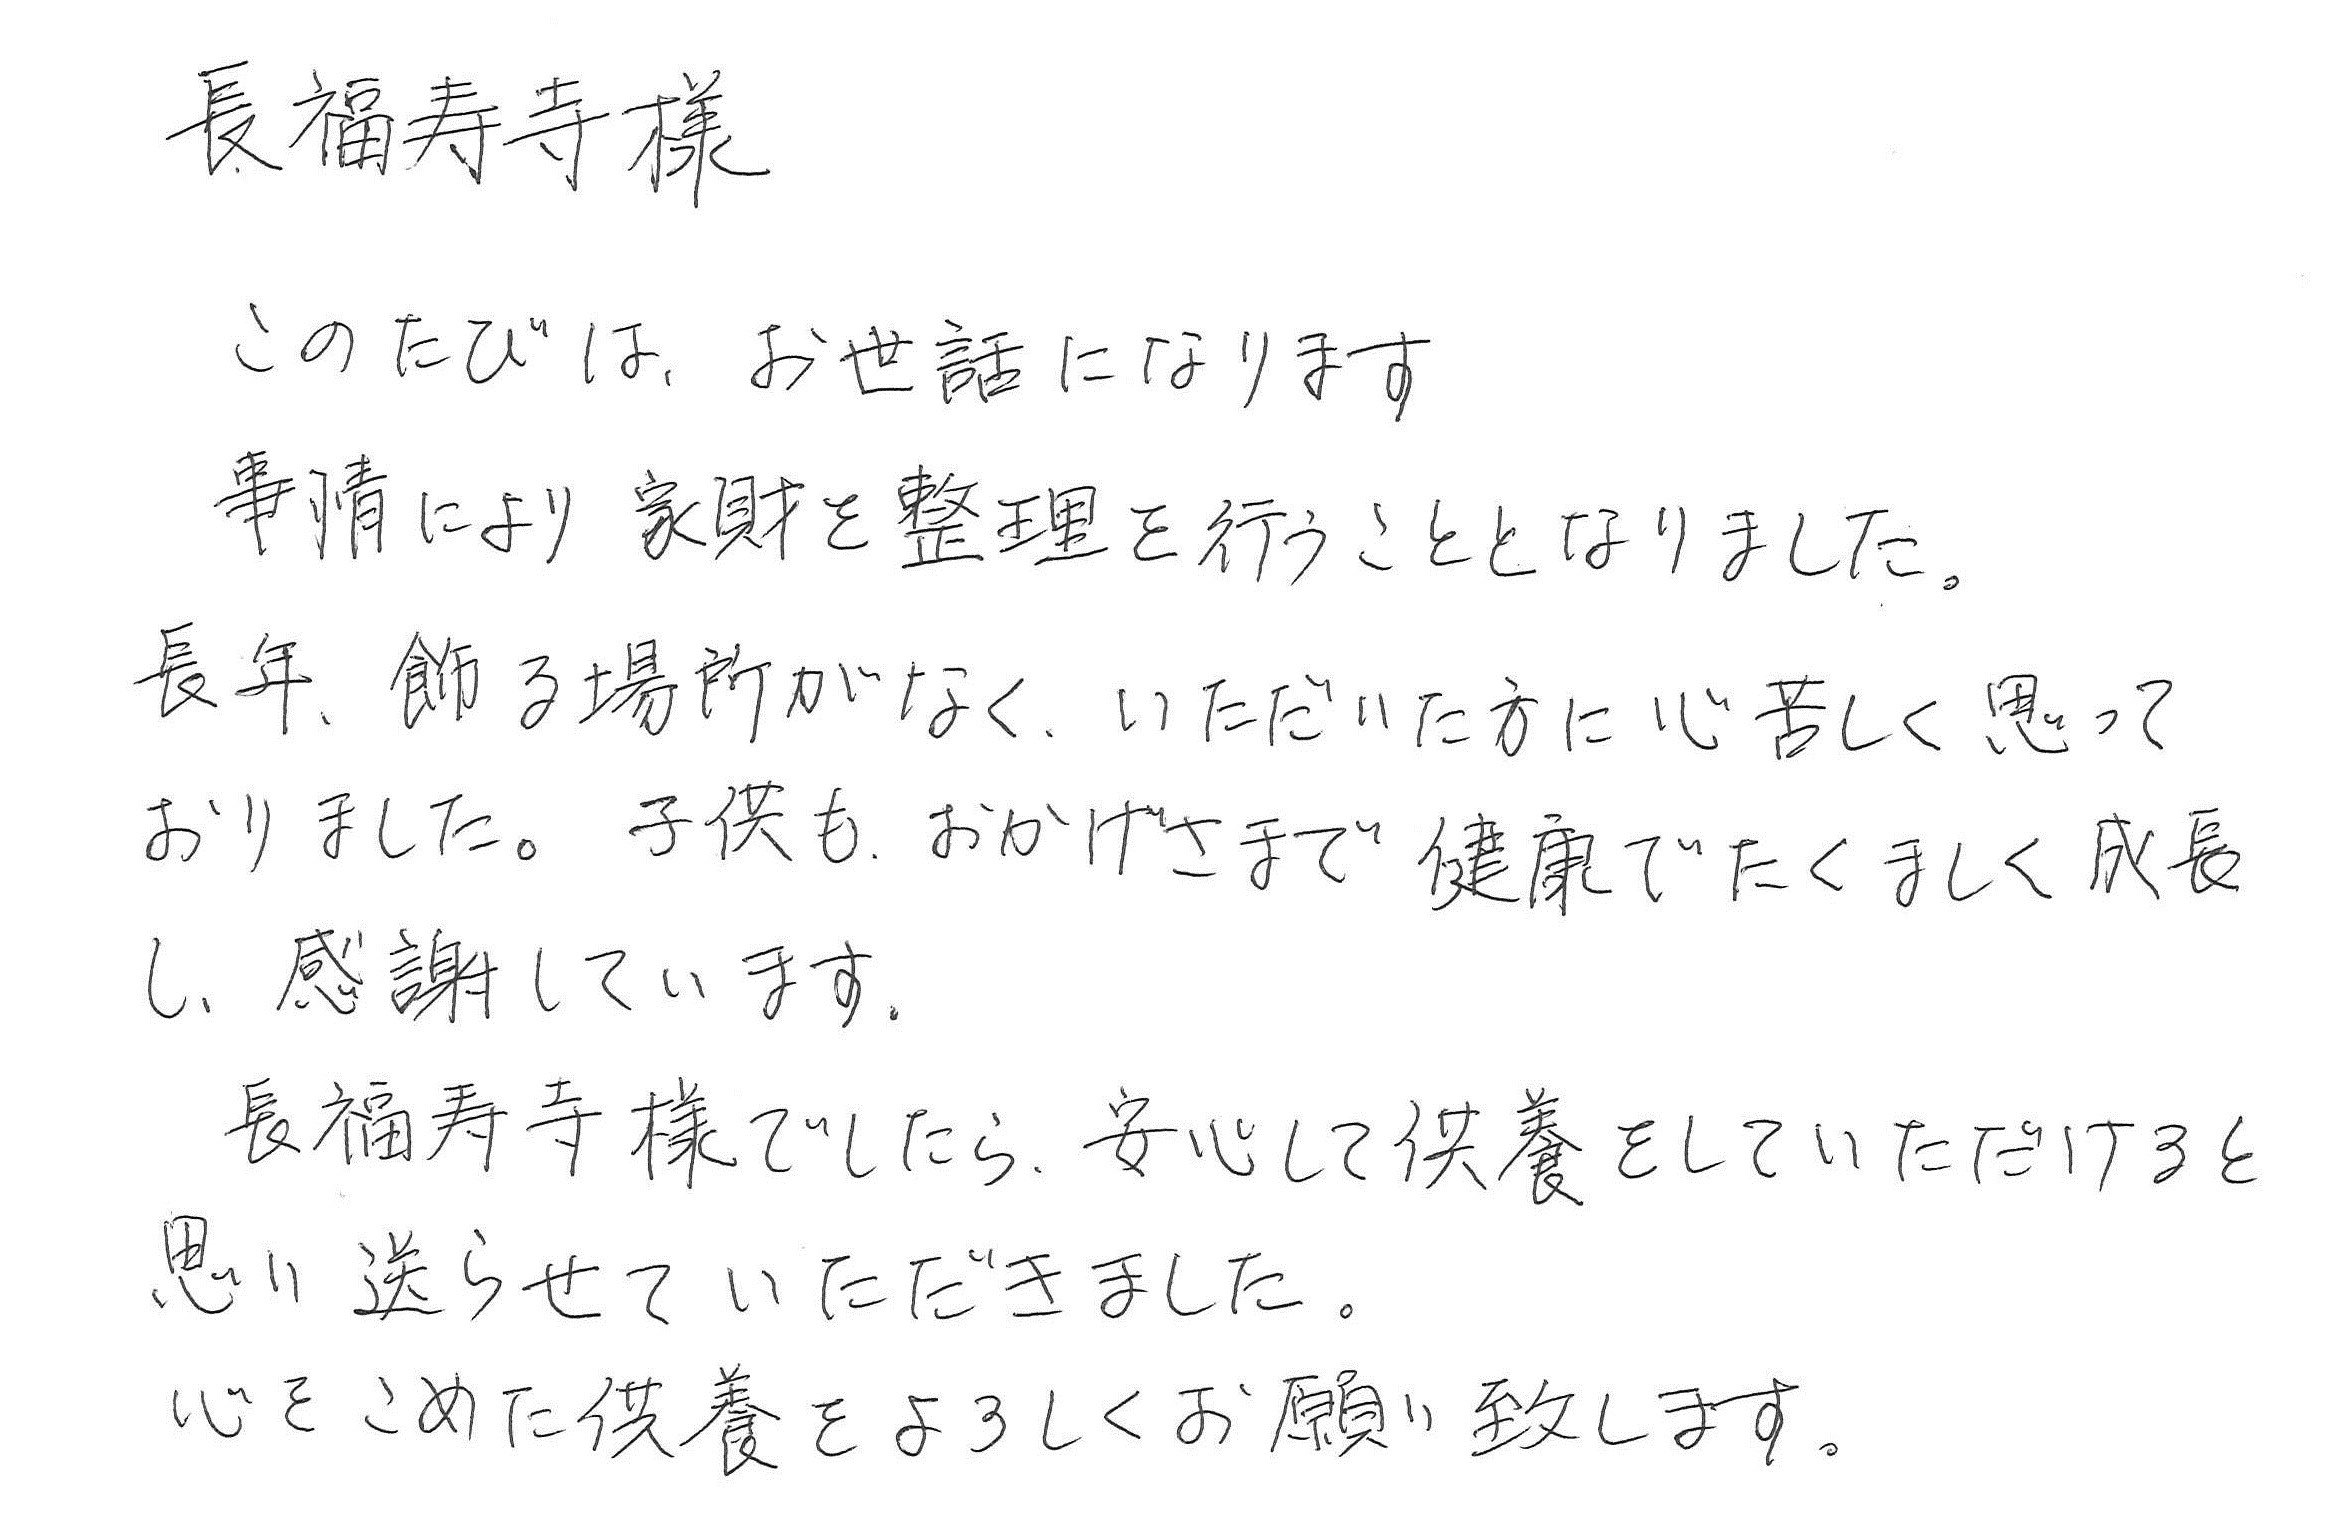 長福寿寺様
このたびは、お世話になります
事情により家財を整理を行うこととなりました。
長年、飾る場所がなく、いただいた方に心苦しく思って
おりました。子供も、おかげさまで健康でたくましく成長
し、感謝しています。
長福寿寺様でしたら、安心して供養をしていただけると
思い送らせていただきました。
心をこめた供養をよろしくお願い致します。